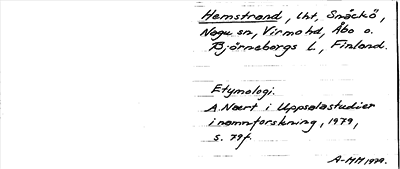 Hemstrand, lht, Snäckö,
Nagu sn, Virmo hd, Åbo o.
Björneborgs L, Finland.
Etymologi.
A Nært i Uppsalastudier
i namnforskning, 1979,
s. 79f.
A-MM 1979.